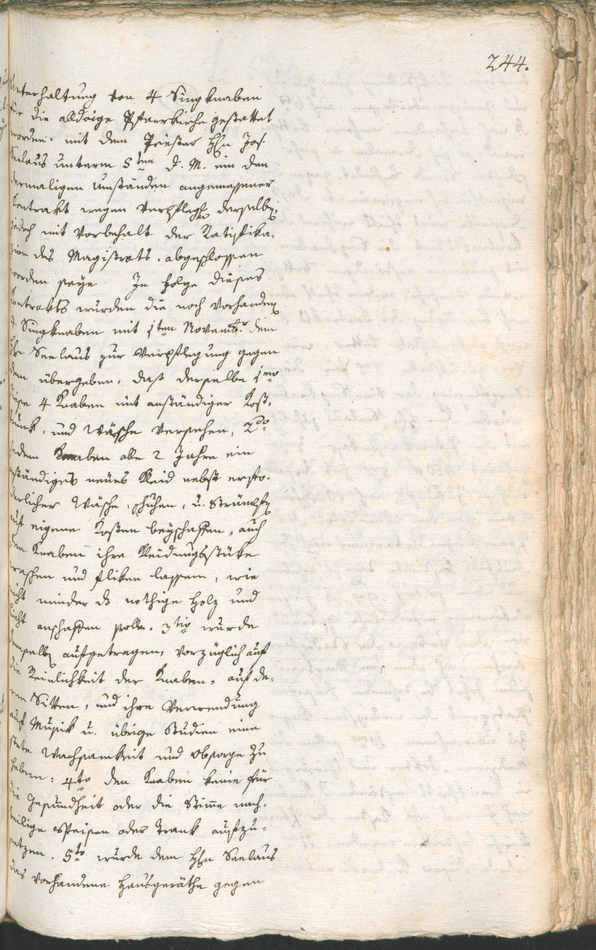 244.
Unterhaltung von 4 Singknaben
für die alldoige Pfarrkirche gestattet
worden. mit dem Priester Hhn Jos.
Seelaus unterm 5ten d. M. ein den
dermaligen Umständen angemessener
Contrakt wegen Verpflegg derselbn
jedoch mit Vorbehalt der Ratifika-
zion des Magistrats. abgeschlossen
worden seye. In folge dieses
Contrakts würden die noch vorhanden
4 Singknaben mit 1ten Novembr dem
Hhn Seelaus zur Verpflegung gegen
dem übergeben, daß derselbe 1mo
diese 4 Knaben mit anständiger Kost,
Trunk, und Wäsche versehen, 2do
jedem Knaben alle 2 Jahre ein
anständiges neues Kleid nebst erfor-
derlicher Wäsche, Schuhen, u. Strümpfn
auf eigene Kosten beyschaffen, auch
den Knaben ihre Kleidungsstüke
waschen und fliken lassen, wie
nicht minder ds nöthige Holz und
Licht anschaffen solle. 3tio würde
demselbn aufgetragen, vorzüglich auf
die Reinlichkeit der Knaben, auf de-
ren Sitten, und ihre Verwendung
auf Musik u. übrige Studien eine
stete Wachsamkeit und Obsorge zu
haben: 4to den Knaben keine für
die Gesundheit oder die Stime nach-
theilige Speisen oder Trank aufzu-
setzen. 5to würde dem Hhn Seelaus
das vorhandene Hausgeräthe gegen